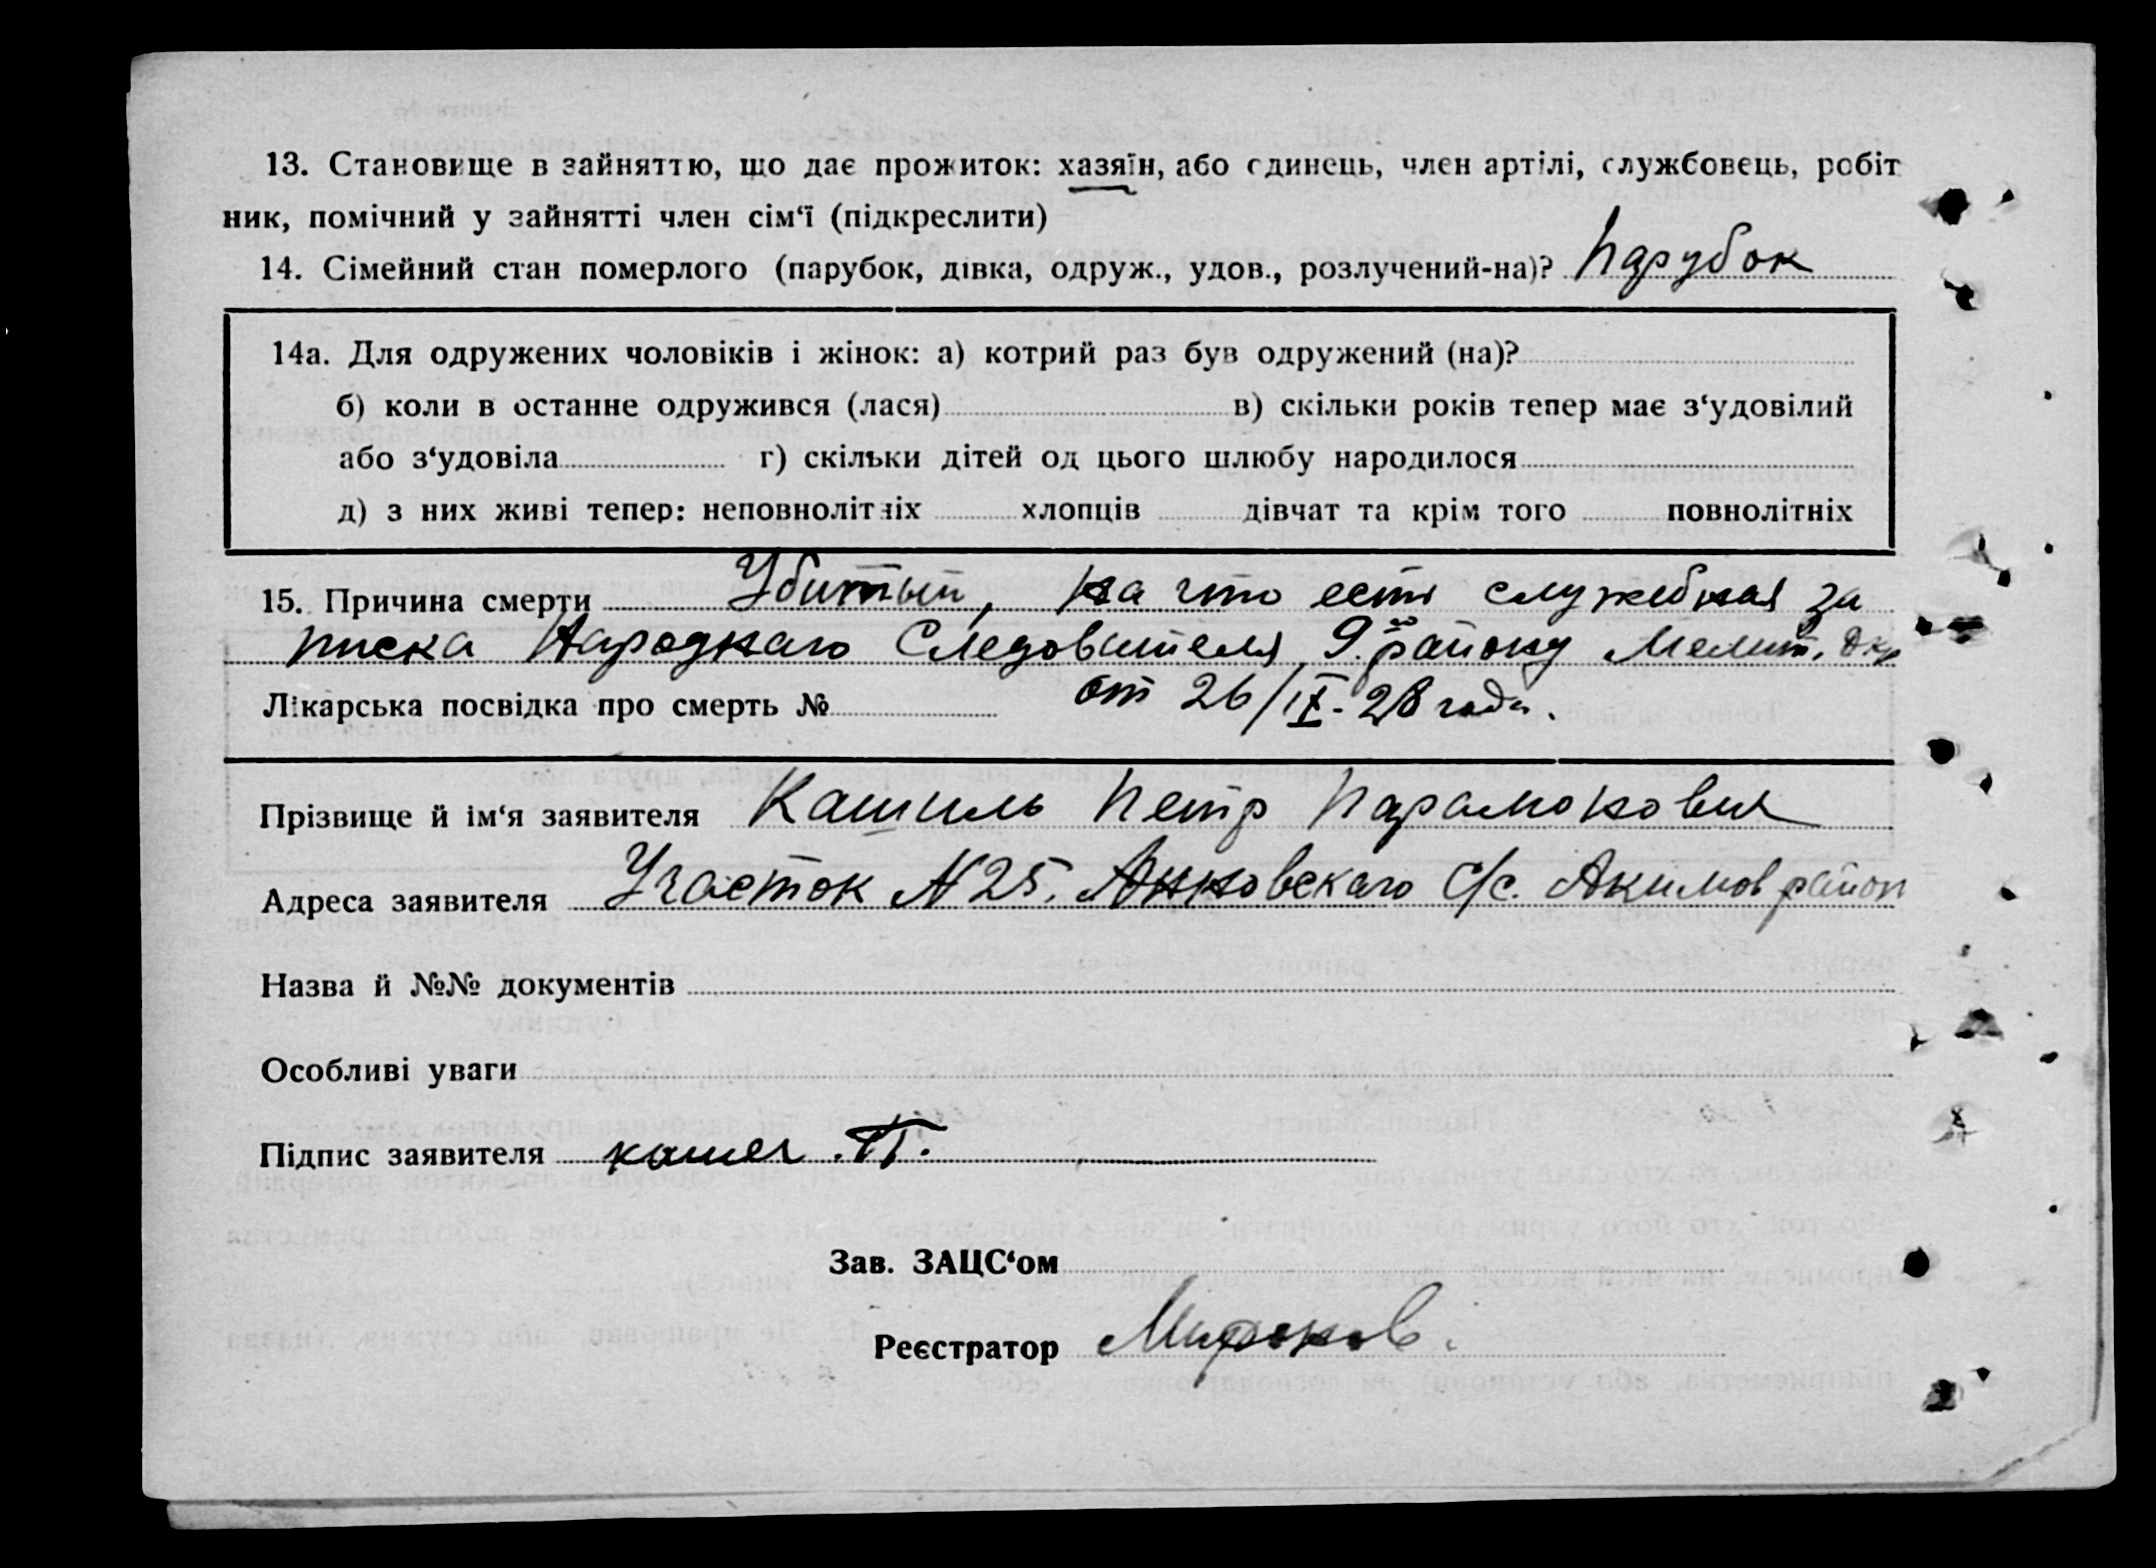 13. Становище в зайняттю, що дає прожиток: хазяїн, або єдинець, член артілі, службовець, робіт
ник, помічний у зайнятті член сім‘ї (підкреслити)
14. Сімейний стан померлого (парубок, дівка, одруж., удов., розлучений-на)? Парубок
14а. Для одружених чоловіків і жінок: а) котрий раз був одружений (на)?
б) коли в останне одружився (лася) в) скільки років тепер має з‘удовілий
або з‘удовіла г) скільки дітей од цього шлюбу народилося
д) з них живі тепер: неповнолітніх хлопців дівчат та крім того повнолітніх
15. Причина смерти Убитый, на что есть служебная за
писка Народнаго Следователя 9го району Мелит. Окр
Лікарська посвідка про смерть № от 26/IX-28 года.
Прізвище й ім‘я заявителя Кашиль Петр Парамонович
Адреса заявителя Участок N25. Анновскаго С/с. Акимов район
Назва й №№ документів
Особливі уваги
Підпис заявителя П.
Зав. ЗАЦС‘ом
Реєстратор Миронов.